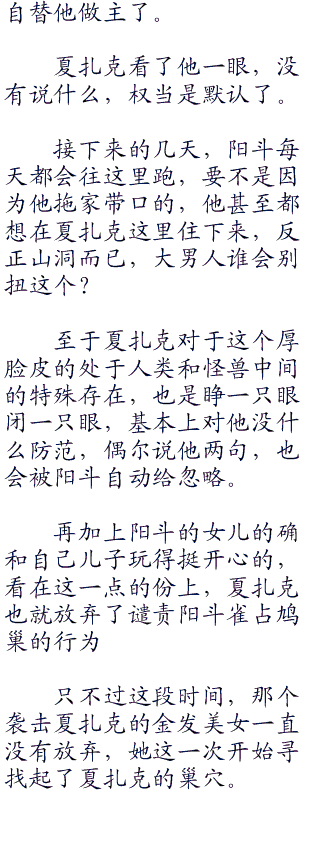 自替他做主了。
夏扎克看了他一眼，没
有说什么，权当是默认了。
接下来的几天，阳斗每
天都会往这里跑，要不是因
为他拖家带口的，他甚至都
想在夏扎克这里住下来，反
正山洞而已，大男人谁会别
扭这个？
至于夏扎克对于这个厚
脸皮的处于人类和怪兽中间
的特殊存在，也是睁一只眼
闭一只眼，基本上对他没什
么防范，偶尔说他两句，也
会被阳斗自动给忽略。
再加上阳斗的女儿的确
和自己儿子玩得挺开心的，
看在这一点的份上，夏扎克
也就放弃了谴责阳斗雀占鸠
巢的行为
只不过这段时间，那个
袭击夏扎克的金发美女一直
没有放弃，她这一次开始寻
找起了夏扎克的巢穴。